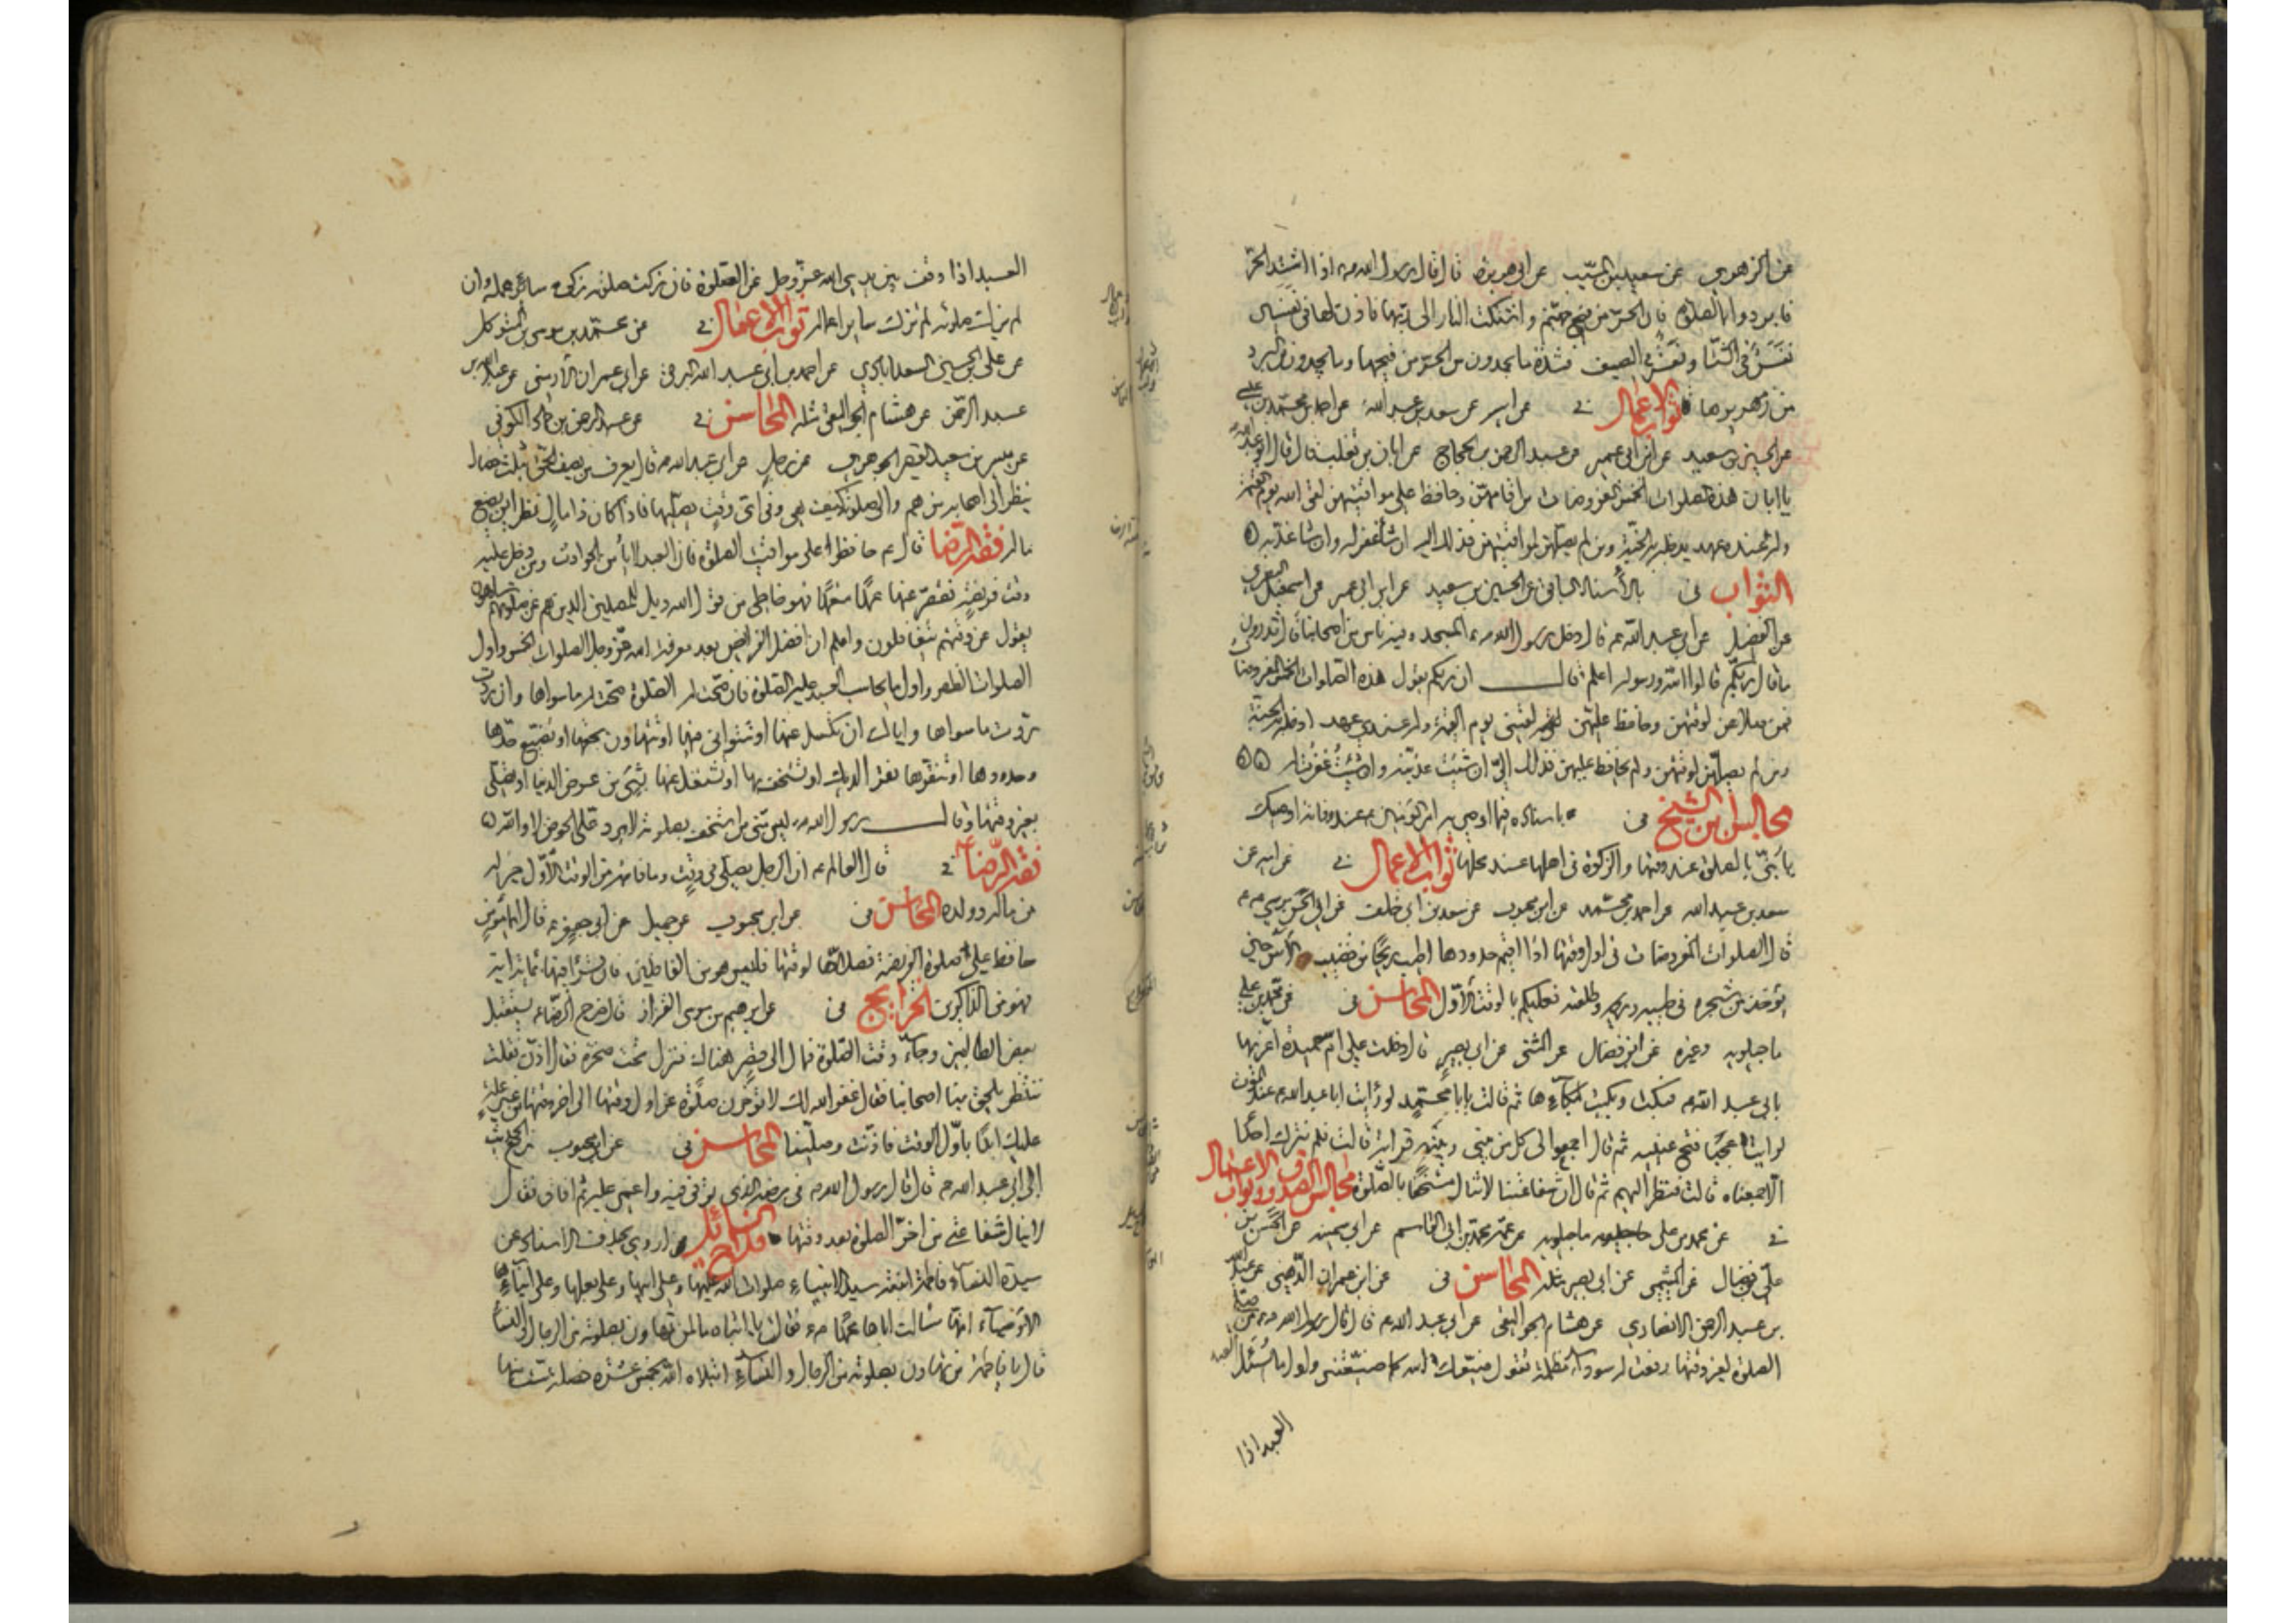 عن الزهري عن سعيد بن المسيب عن ابي هريرة قال قال رسول الله ص اذا اشتد الحر
فابردوا بالصلوة فان الحر من فيح جهنم و اشتكت النار الى ربها فاذن لها في نفسين
نفس في الشتا و نفس في الصيف فشدة ما تجدون من الحر من فيحها وما تجدون من البرد
من زمهريرها ثواب الاعمال في عن ابيه عن سعد بن عبد الله عن احمد بن محمد بن عيسى
عن الحسين بن سعيد عن ابن ابي عمير عن عبد الرحمن بن الحجاج عن ابان بن تغلب قال قال ابو عبد الله
يا ابان هذه الصلوات الخمس المفروضات من اقامهن وحافظ على مواقيتهن لقى الله يوم القيمة
وله عنده عهد يدخله به الجنة ومن لم يصلهن لمواقيتهن فذلك اليه ان شاء غفر له وان شا عذبه
الثواب في بالاسناد عن الحسين بن سعيد عن ابن ابي عمير عن اسمعيل البصري
عن الفضيل عن ابي عبد الله ع قال دخل رسول الله ص المسجد وفيه ناس من اصحابه قال تدرون
ما قال ربكم قالوا الله ورسوله اعلم قال ان ربكم يقول هذه الصلوات الخمس المفروضات
فمن صلاهن لوقتهن وحافظ عليهن لقيني يوم القيمة وله عندي عهد ادخله به الجنة
ومن لم يصلهن لوقتهن ولم يحافظ عليهن فذلك الي ان شئت عذبته وان شئت غفرت له
مجالس ابن الشيخ في باسناده فيما اوصى به امير المؤمنين ع عند وفاته اوصيك
يا بني بالصلوة عند وقتها والزكوة في اهلها عند محلها ثواب الاعمال في عن ابيه عن
سعد بن عبد الله عن احمد بن محمد عن ابن محبوب عن سعد بن ابي خلف عن ابي الحسن موسى ع
قال الصلوات المفروضات في اول وقتها اذا اقيم حدودها اطيب ريحا من قضيب الآس حين
يؤخذ من شجره في طيبه وريحه وطلعته فعليكم بالوقت الاول المحاسن في عن محمد بن علي
ماجيلويه وغيره عن ابن فضال عن المثنى عن ابي بصير قال دخلت على ام حميدة اعزيها
بابي عبد الله ع فبكت وبكيت لبكاءها ثم قالت يا با محمد لو رايت ابا عبد الله ع عند الموت
لرايت عجبا فتح عينيه ثم قال اجمعوا الى كل من بيني وبينه قرابة قالت فلم نترك احدا
الا جمعناه قالت فنظر اليهم ثم قال ان شفاعتنا لا تنال مستخفا بالصلوة مجالس الصدوق وثواب الاعمال
في عن محمد بن علي ماجيلويه عن عمه محمد بن ابي القاسم عن ابي سمينه عن الحسن بن
علي بن فضال عن الميثمي عن ابي بصير مثله المحاسن في عن ابن عمران الذهني عن عبد الله
بن عبد الرحمن الانصاري عن هشام الجواليقي عن ابي عبد الله ع قال قال رسول الله ص من صلى
الصلوة لغير وقتها رفعت له سوداء مظلمة تقول ضيعك الله كما ضيعتني واول ما يسئل العبد
العبد اذا
العبد اذا وقف بين يدي الله عز وجل عن الصلوة فان زكت صلوته زكى سائر عمله وان
لم تزك صلوته لم تزك ساير اعماله ثواب الاعمال في عن محمد بن موسى بن المتوكل
عن علي بن الحسين السعدابادي عن احمد بن ابي عبد الله البرقي عن ابي عمران الارمني عن عبد الله بن
عبد الرحمن عن هشام الجواليقي مثله المحاسن في عن عبد الرحمن بن حماد الكوفي
عن ميسر بن سعيد القصير الجوهري عن رجل عن ابي عبد الله ع قال يعرف من يصف الحق بثلث خصال
ينظر الى اصحابه من هم والى صلوته كيف هي وفي اي وقت يصليها فان كان ذا مال نظر اين يضع
ماله فقه الرضا قال ع حافظوا على مواقيت الصلوة فان العبد لا يأمن الحوادث ومن دخل عليه
وقت فريضة فقصر عنها عمدا متعمدا فهو خاطي من قول الله ويل للمصلين الذين هم عن صلوتهم ساهون
يقول عن وقتهم يتغافلون واعلم ان افضل الفرايض بعد معرفة الله عز وجل الصلوات الخمس واول
الصلوات الظهر واول ما يحاسب العبد عليه الصلوة فان صحت له الصلوة صحت له ما سواها وان ردت
ردت ما سواها واياك ان تكسل عنها او تتوانى فيها او تتهاون بحقها او تضيع حدها
وحدودها او تنقرها نقر الديك او تستخف بها او تشتغل عنها بشيء من عرض الدنيا او تصلي
بغير وقتها وقال رسول الله ص ليس مني من استخف بصلوته لا يرد علي الحوض لا والله
فقه الرضا في قال العالم ع ان الرجل يصلي في وقت وما فاته من الوقت الاول خير له
من ماله وولده المحاسن في عن ابن محبوب عن جميل عن ابي جعفر ع قال ايما مؤمن
حافظ على صلوة الفريضة فصلاها لوقتها فليس هو من الغافلين فان قرأ فيها بمائة اية
فهو من الذاكرين الخرايج في عن ابرهيم بن موسى القزاز قال خرج الرضا ع يستقبل
بعض الطالبيين وجاء وقت الصلوة فمال الى قصر هناك فنزل تحت صخرة فقال اذن فقلت
ننتظر يلحق بنا اصحابنا فقال غفر الله لك لا تؤخرن صلوة عن اول وقتها الى اخر وقتها من غير علة
عليك ابدا باول الوقت فاذنت وصلينا المحاسن في عن ابن محبوب
الى ابي عبد الله ع قال قال رسول الله ص في مرضه الذي توفي فيه واغمي عليه ثم افاق فقال
لا ينال شفاعتي من اخر الصلوة بعد وقتها فلاح السائل روى بحذف الاسناد عن
سيدة النساء فاطمة ابنة سيد الانبياء صلوات الله عليها وعلى ابيها وعلى بعلها وعلى ابناءها
الاوصياء انها سالت اباها محمدا ص فقالت يا ابتاه ما لمن تهاون بصلوته من الرجال والنساء
قال يا فاطمة من تهاون بصلوته من الرجال والنساء ابتلاه الله بخمس عشرة خصلة ست منها